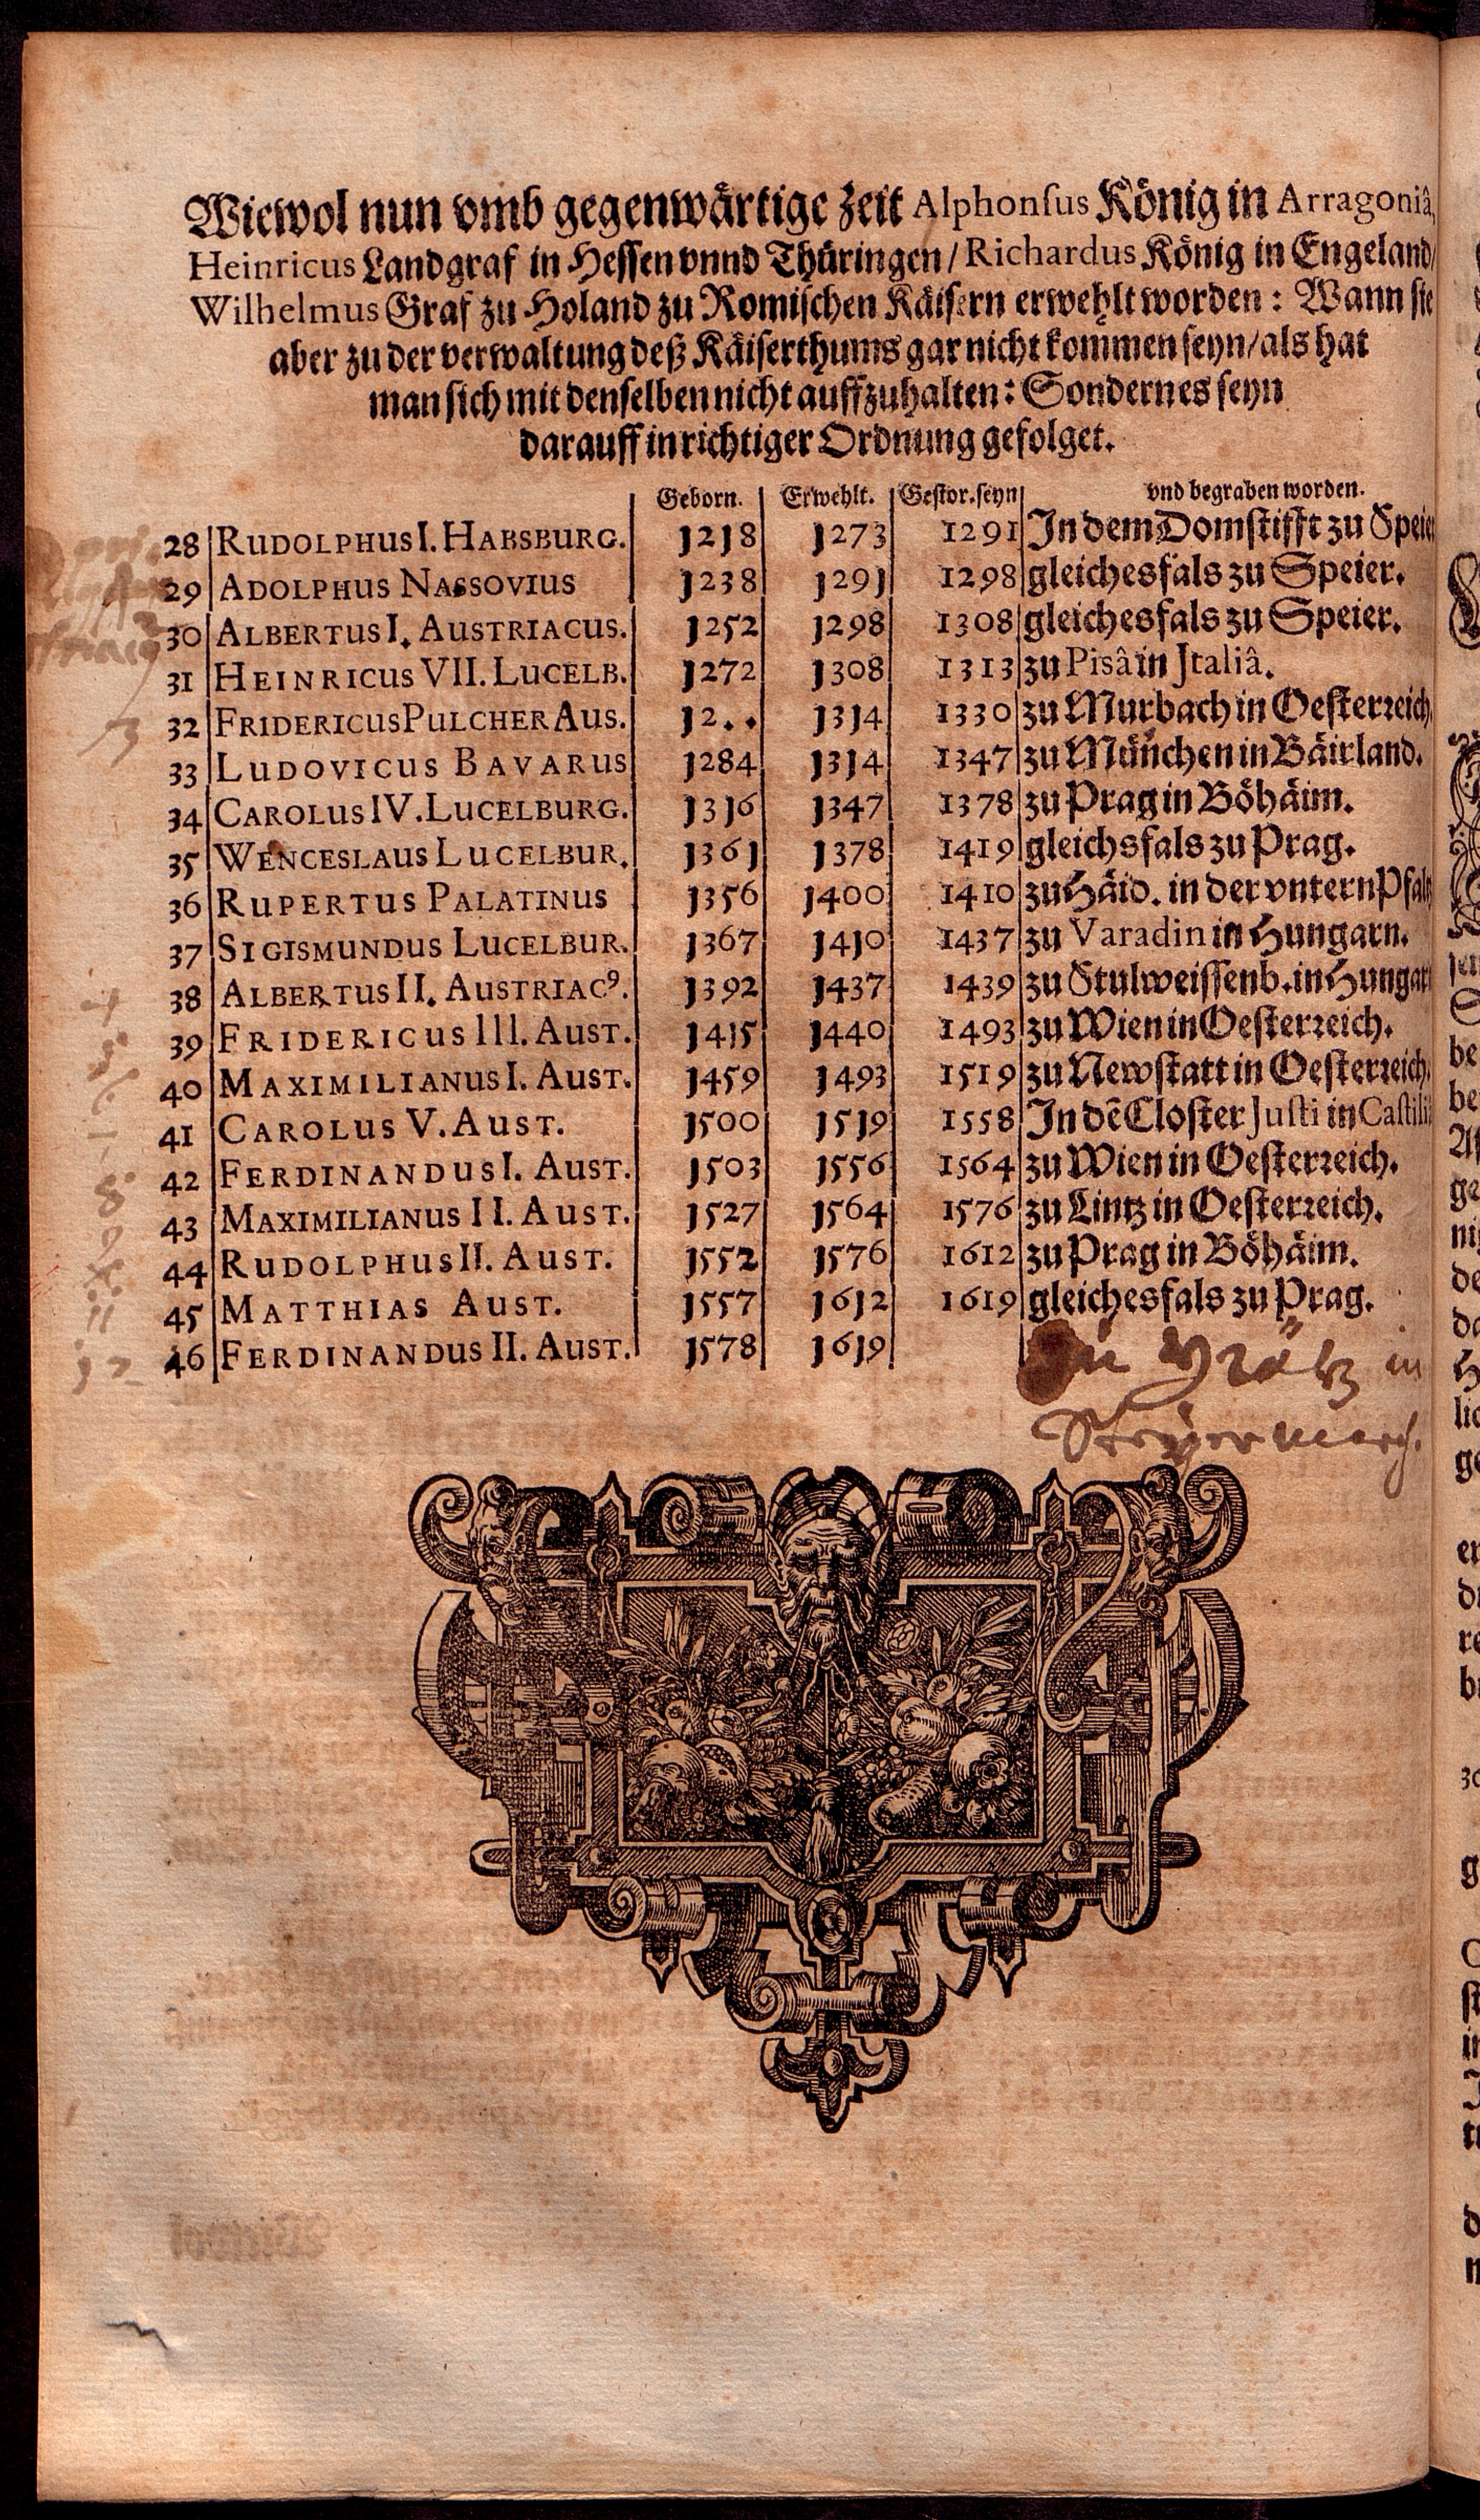 Wiewol nun vmb gegenwärtige zeit Alphonsus König in Arragoniâ,
Heinricus Landgraf in Hessen vnnd Thüringen/ Richardus König in Engeland/
Wilhelmus Graf zu Holand zu Romischen Käisern erwehlt worden: Wann sie
aber zu der verwaltung deß Käiserthums gar nicht kommen seyn/ als hat
man sich mit denselben nicht auffzuhalten: Sondern es seyn
darauff in richtiger Ordnung gefolget.
Geborn. Erwehlt. Gestor. seyn vnd begraben worden.
28 RUDOLPHUS I. HABSBURG. 1218 1273 1291 In dem Domstifft zu Speier
29 ADOLPHUS NASSOVIUS 1238 1291 1298 gleichesfals zu Speier.
30 ALBERTUS I. AUSTRIACUS. 1252 1298 1308 gleichesfals zu Speier.
31 HEINRICUS VII. LUCELB. 1272 1308 1313 zu Pisâ in Jtaliâ.
32 FRIDERICUS PULCHER AUS. 12.. 1314 1330 zu Murbach in Oesterreich.
33 LUDOVICUS BAVARUS 1284 1314 1347 zu München in Bäirland.
34 CAROLUS IV. LUCELBURG. 1316 1347 1378 zu Prag in Böhäim.
35 WENCESLAUS LUCELBUR. 1361 1378 1419 gleichsfals zu Prag.
36 RUPERTUS PALATINUS 1356 1400 1410 zu Häid. in der vntern Pfaltz
37 SIGISMUNDUS LUCELBUR. 1367 1410 1437 zu Varadin in Hungarn.
4 38 ALBERTUS II. AUSTRIAC9. 1392 1437 1439 zu Stulweissenb. in Hungar
5 39 FRIDERICUS III. AUST. 1415 1440 1493 zu Wien in Oesterreich.
6 40 MAXIMILIANUS I. AUST. 1459 1493 1519 zu Newstatt in Oesterreich.
41 CAROLUS V. AUST. 1500 1519 1558 In dē Closter Justi in Castiliâ
8 42 FERDINANDUS I. AUST. 1503 1556 1564 zu Wien in Oesterreich.
9 43 MAXIMILIANUS II. AUST. 1527 1564 1576 zu Lintz in Oesterreich.
44 RUDOLPHUS II. AUST. 1552 1576 1612 zu Prag in Böhäim.
11 45 MATTHIAS AUST. 1557 1612 1619 gleichesfals zu Prag.
12 46 FERDINANDUS II. AUST. 1578 1619 zu Grätz in
Steÿermarch.